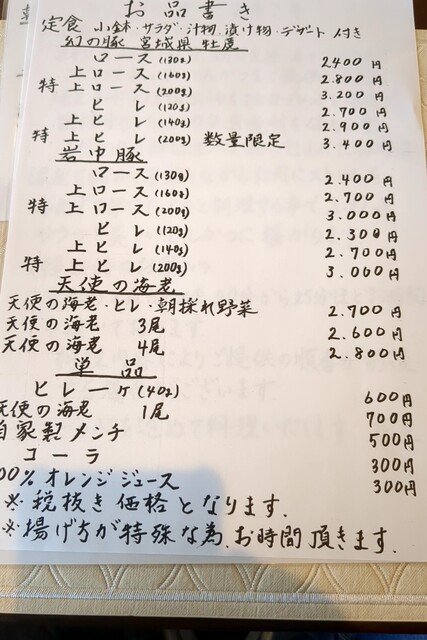 お品書き
定食 小鉢・サラダ・汁物・漬け物・デザート付き
幻の豚 宮城県 牡鹿
ロース(130g) 2.400円
上ロース(160g) 2.800円
特上ロース(200g) 3.200円
ヒレ(120g) 2.700円
上ヒレ(140g) 2.900円
特上ヒレ(200g) 数量限定 3.400円
岩中豚
ロース(130g) 2.400円
上ロース(160g) 2.700円
特上ロース(200g) 3.000円
ヒレ(120g) 2.300円
上ヒレ(140g) 2.700円
特上ヒレ(200g) 3.000円
天使の海老
天使の海老・ヒレ・朝採れ野菜 2.700円
天使の海老 3尾 2.600円
天使の海老 4尾 2.800円
単品
ヒレ一ヶ(40g) 600円
天使の海老 1尾 700円
自家製メンチ 500円
コーラ 300円
00%オレンジジュース 300円
※税抜き価格となります.
※揚げ方が特殊な為、お時間頂きます.